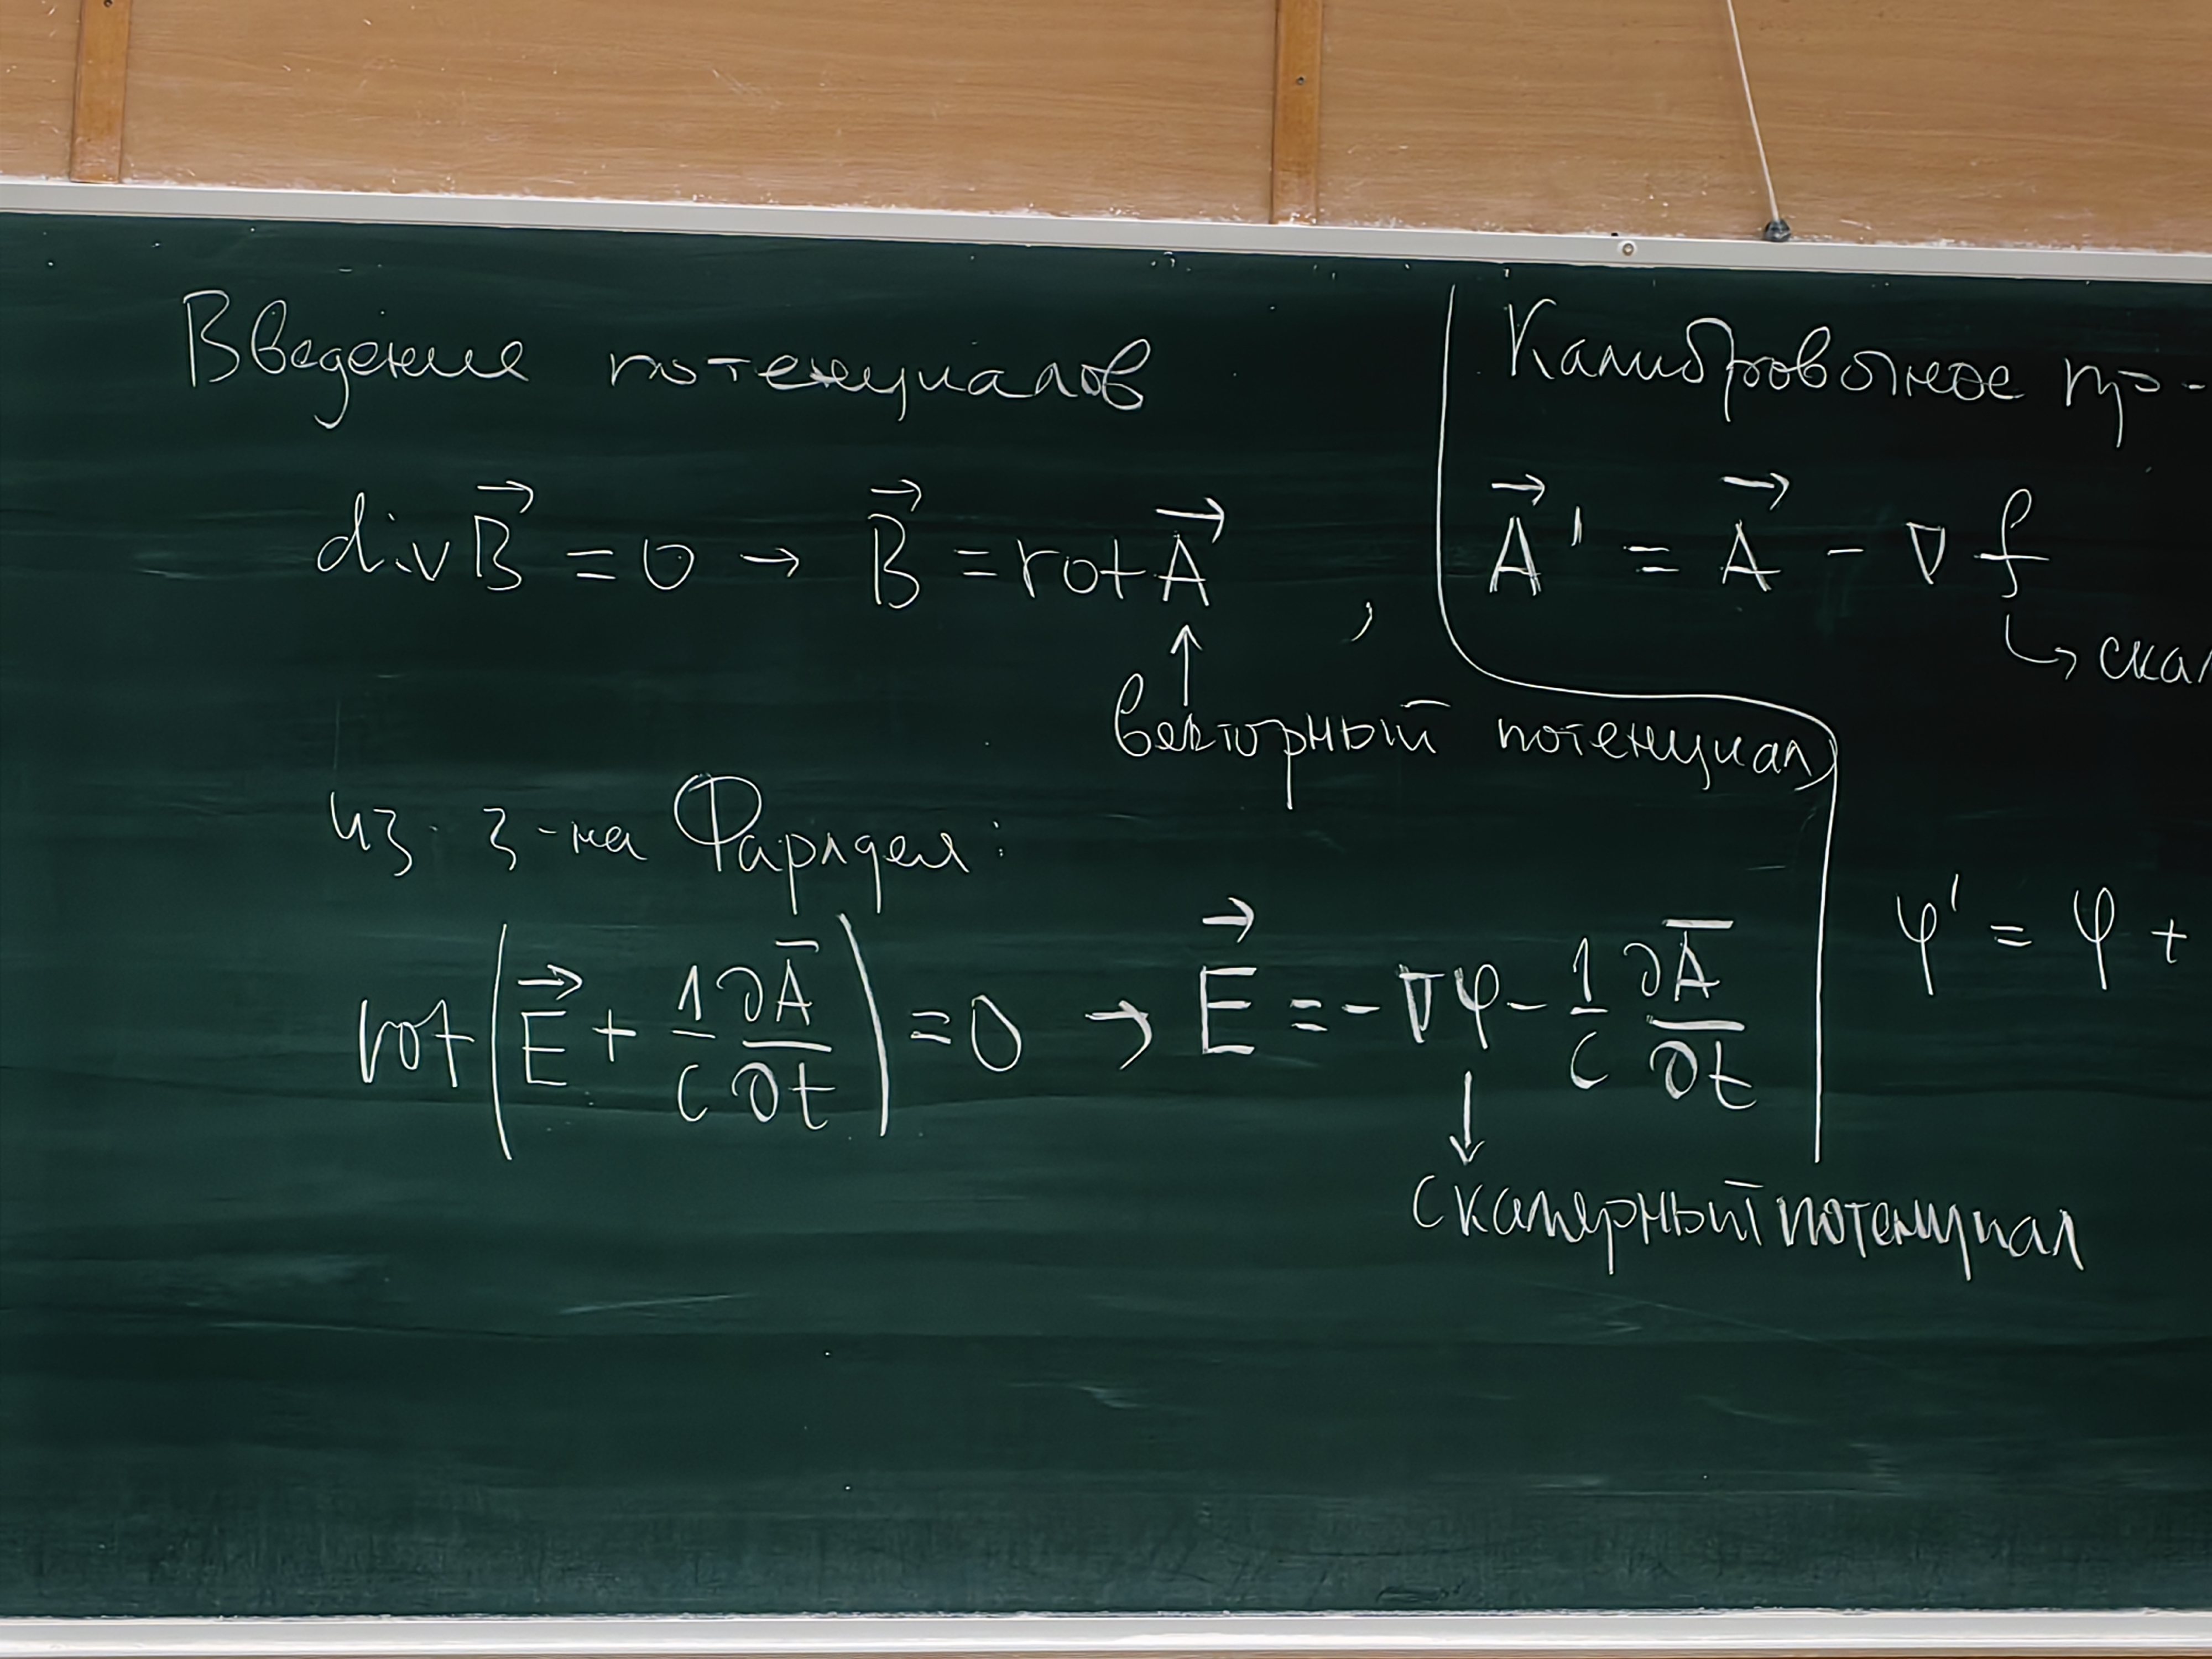 Введение потенциалов
div B⃗ = 0 → B⃗ = rot A⃗ ,
↑
векторный потенциал
из з-на Фарадея:
rot(E⃗ + 1/c ∂A̅/∂t) = 0 → E⃗ = -∇φ - 1/c ∂A̅/∂t
↓
скалярный потенциал
Калибровочное пр-
A⃗' = A⃗ - ∇f
↳ скал
φ' = φ +